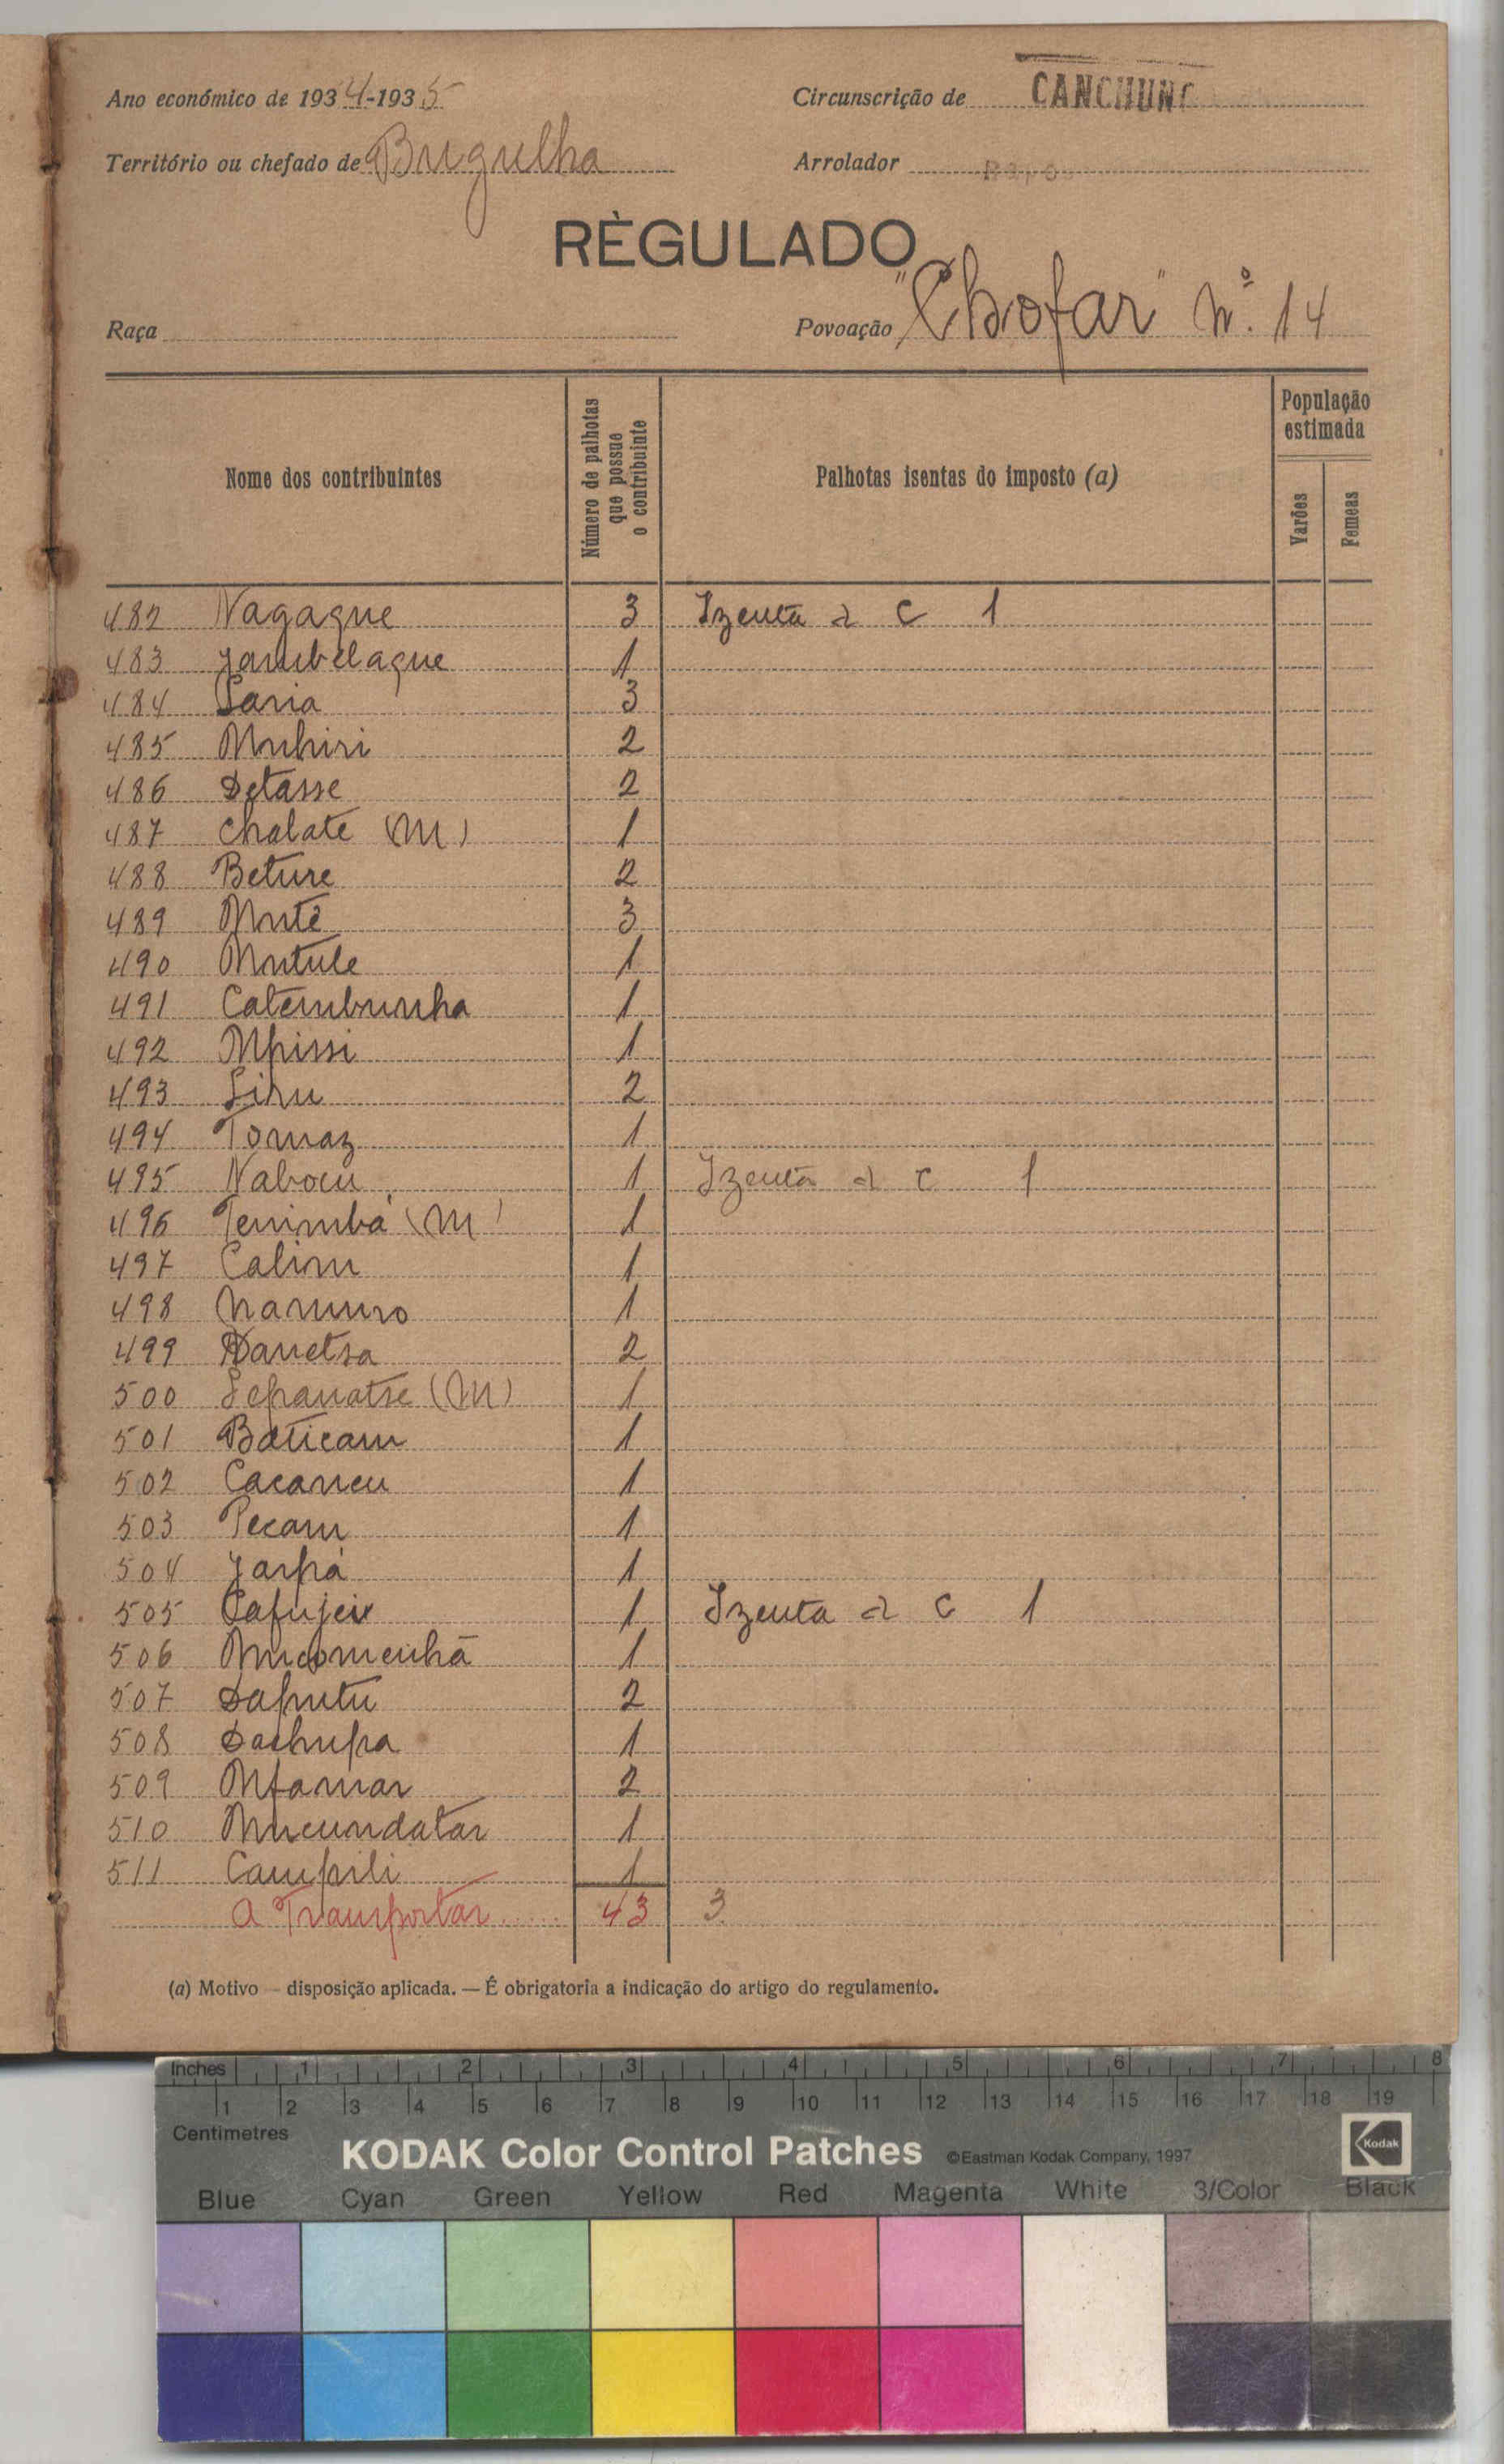 Ano económico de 1934-1935
Circunscrição de CANCHUNG
Território ou chefado de Bugulha
Arrolador
RÈGULADO
Raça
Povoação "Chofar" Nº 14
Nome dos contribuintes
Número de palhotas que possue o contribuinte
Palhotas isentas do imposto (a)
População estimada
Varões
Femeas
482 Nagague 3 Izenta a c 1
483 Jambelaque 1
484 Saria 3
485 Muhiri 2
486 Detasse 2
487 Chalate (M) 1
488 Beture 2
489 Mute 3
490 Mutule 1
491 Catembunha 1
492 Mpissi 1
493 Siru 2
494 Tomaz 1
495 Nabocu 1 Izenta a c 1
496 Tenimba (M) 1
497 Calim 1
498 Nanunro 1
499 Danetsa 2
500 Sepanatse (M) 1
501 Baticam 1
502 Cacaneu 1
503 Pecam 1
504 Jarpá 1
505 Cafujei 1 Izenta a c 1
506 Mucomenhã 1
507 Daputu 2
508 Dachupa 1
509 Mfamar 2
510 Mucundatar 1
511 Campili 1
A Transportar 43 3
(a) Motivo — disposição aplicada. — É obrigatoria a indicação do artigo do regulamento.
Inches 1 2 3 4 5 6 7 8
1 2 3 4 5 6 7 8 9 10 11 12 13 14 15 16 17 18 19
Centimetres
KODAK Color Control Patches ©Eastman Kodak Company, 1997 Kodak
Blue Cyan Green Yellow Red Magenta White 3/Color Black